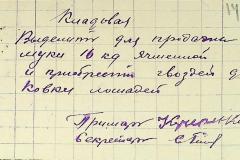 Кладовая
Выделить для продажи
муки 16 кд ячменной
и приобрести гвоздей д
ковки лошадей
Примарь
Секретарь